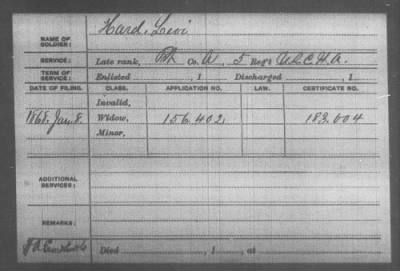 NAME OF SOLDIER: Hard, Levi
SERVICE: Late rank, Pvt Co. A, 5 Reg't U.S.C.H.A.
TERM OF SERVICE: Enlisted , 1 Discharged , 1
DATE OF FILING. CLASS. APPLICATION NO. LAW. CERTIFICATE NO.
Invalid,
1868, Jan. 8. Widow, 156.402. 183.004
Minor,
ADDITIONAL SERVICES:
REMARKS:
Died , 1 , at